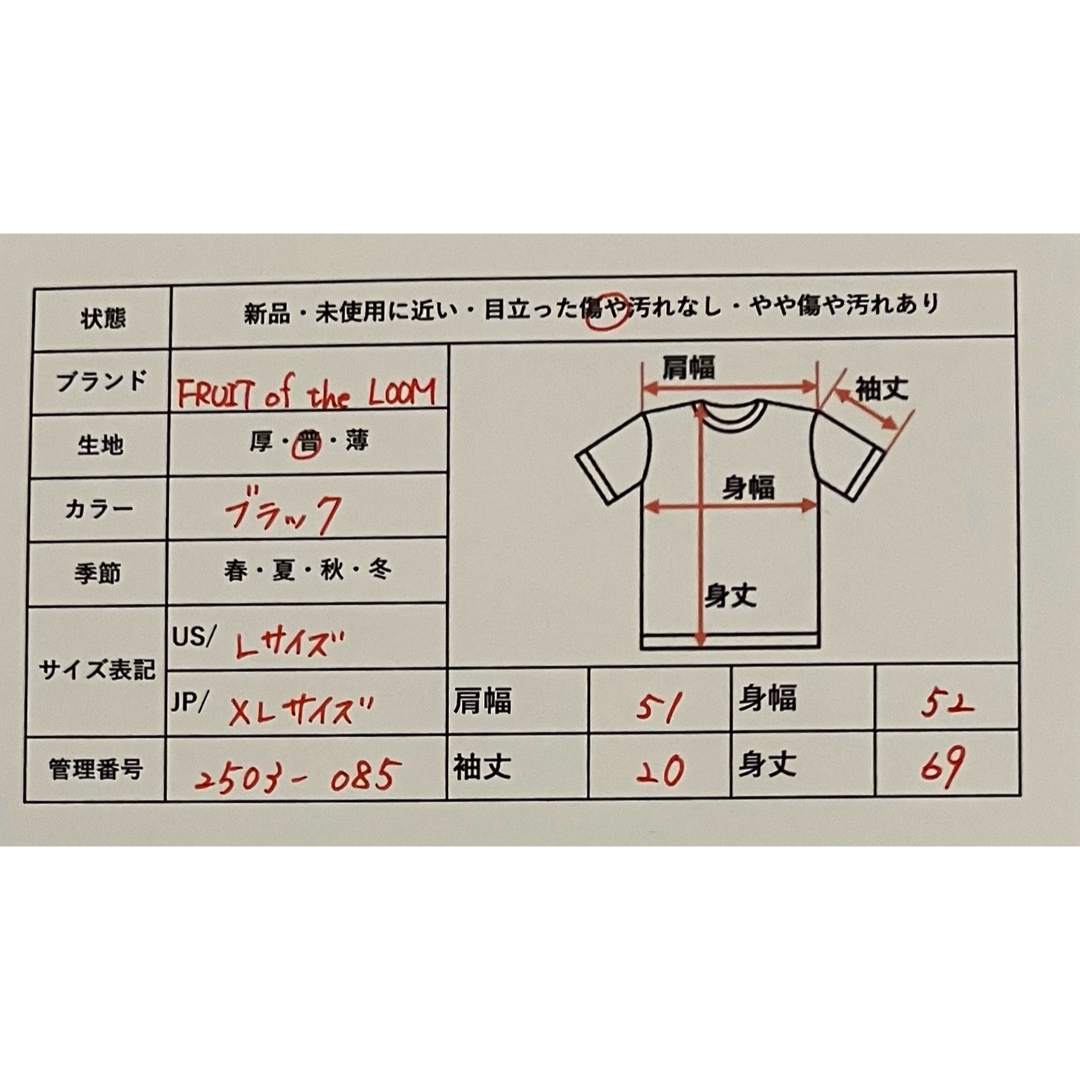 状態 新品・未使用に近い・目立った傷や汚れなし・やや傷や汚れあり
ブランド FRUIT of the LOOM
生地 厚・普・薄
カラー ブラック
季節 春・夏・秋・冬
サイズ表記 US/ Lサイズ
JP/ XLサイズ
管理番号 2503-085
肩幅
袖丈
身幅
身丈
肩幅 51 身幅 52
袖丈 20 身丈 69